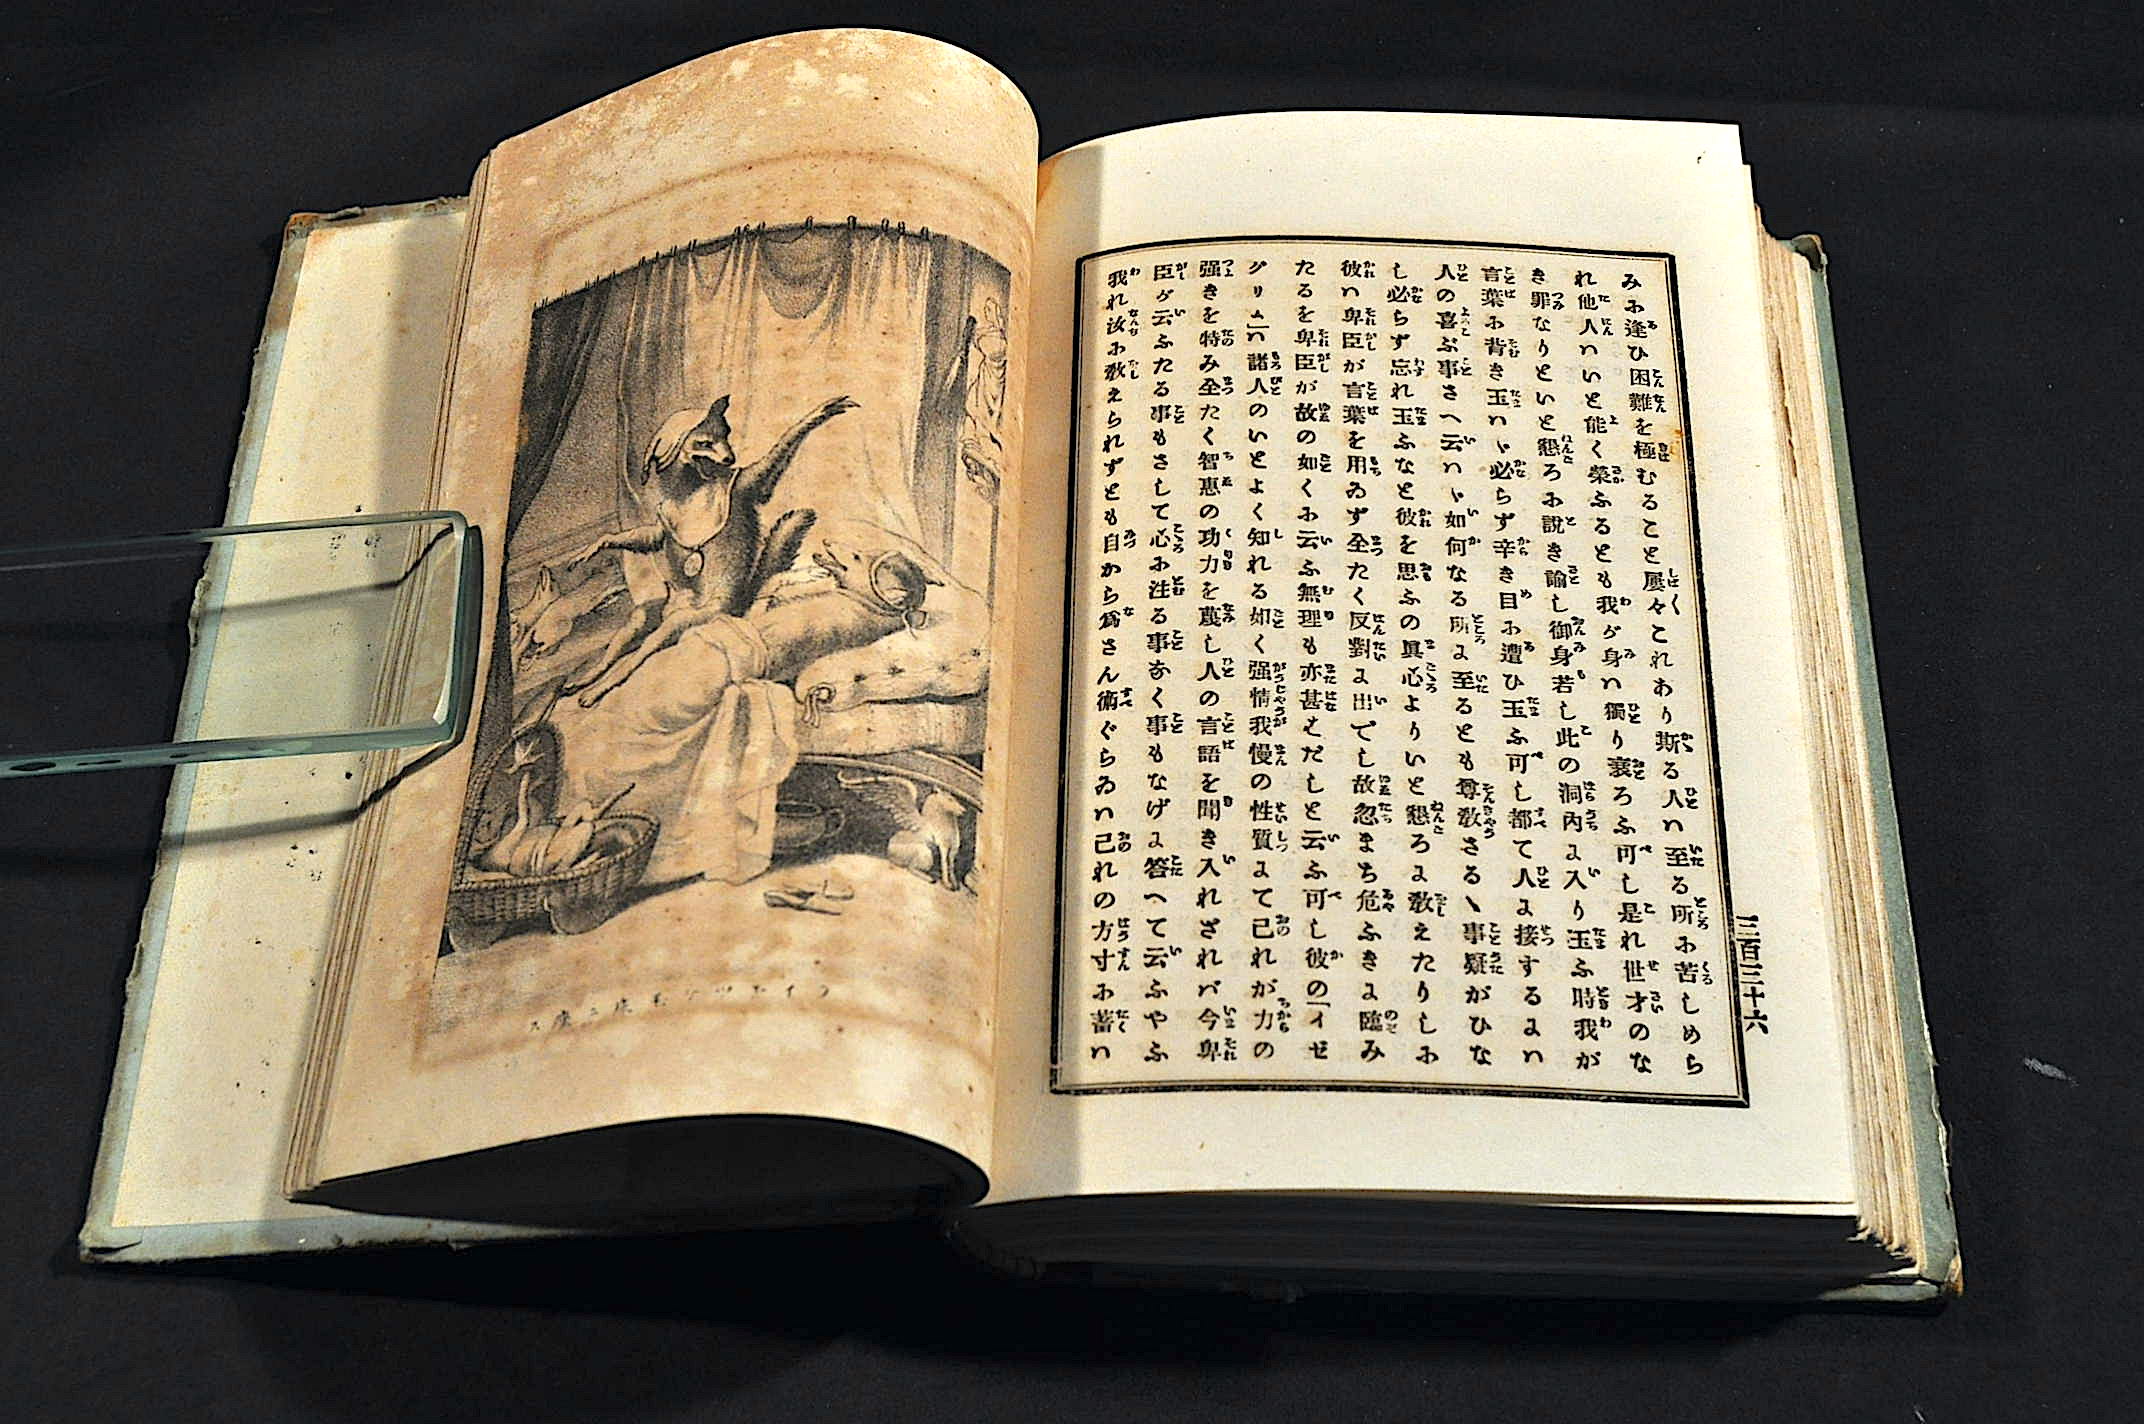 みふ逢ひ困難を極むること屡々これあり斯る人ハ至る所ふ苦しめら
れ他人ハいと能く榮ふるとも我が身ハ獨り衰ろふ可し是れ世才のな
き罪なりといと懇ろふ説き諭し御身若し此の洞内に入り玉ふ時我が
言葉ふ背き玉ハヾ必らず辛き目ふ遭ひ玉ふ可し都て人に接するにハ
人の喜ぶ事さへ云ハヾ如何なる所に至るとも尊敬さるヽ事疑がひな
し必らず忘れ玉ふなと彼を思ふの眞心よりいと懇ろに敎えたりしふ
彼ハ卑臣が言葉を用ゐず全たく反對に出でし故忽まち危ふきに臨み
たるを卑臣が故の如くふ云ふ無理も亦甚はだしと云ふ可し彼の「イゼ
グリム」ハ諸人のいとよく知れる如く强情我慢の性質にて己れが力の
强きを特み全たく智惠の功力を蔑し人の言語を聞き入れざれバ今卑
臣が云ふたる事もさして心ふ注る事なく事もなげに答へて云ふやふ
我れ汝ふ敎えられずとも自から爲さん術ぐらゐハ己れの方寸ふ蓄ハ
三百三十六